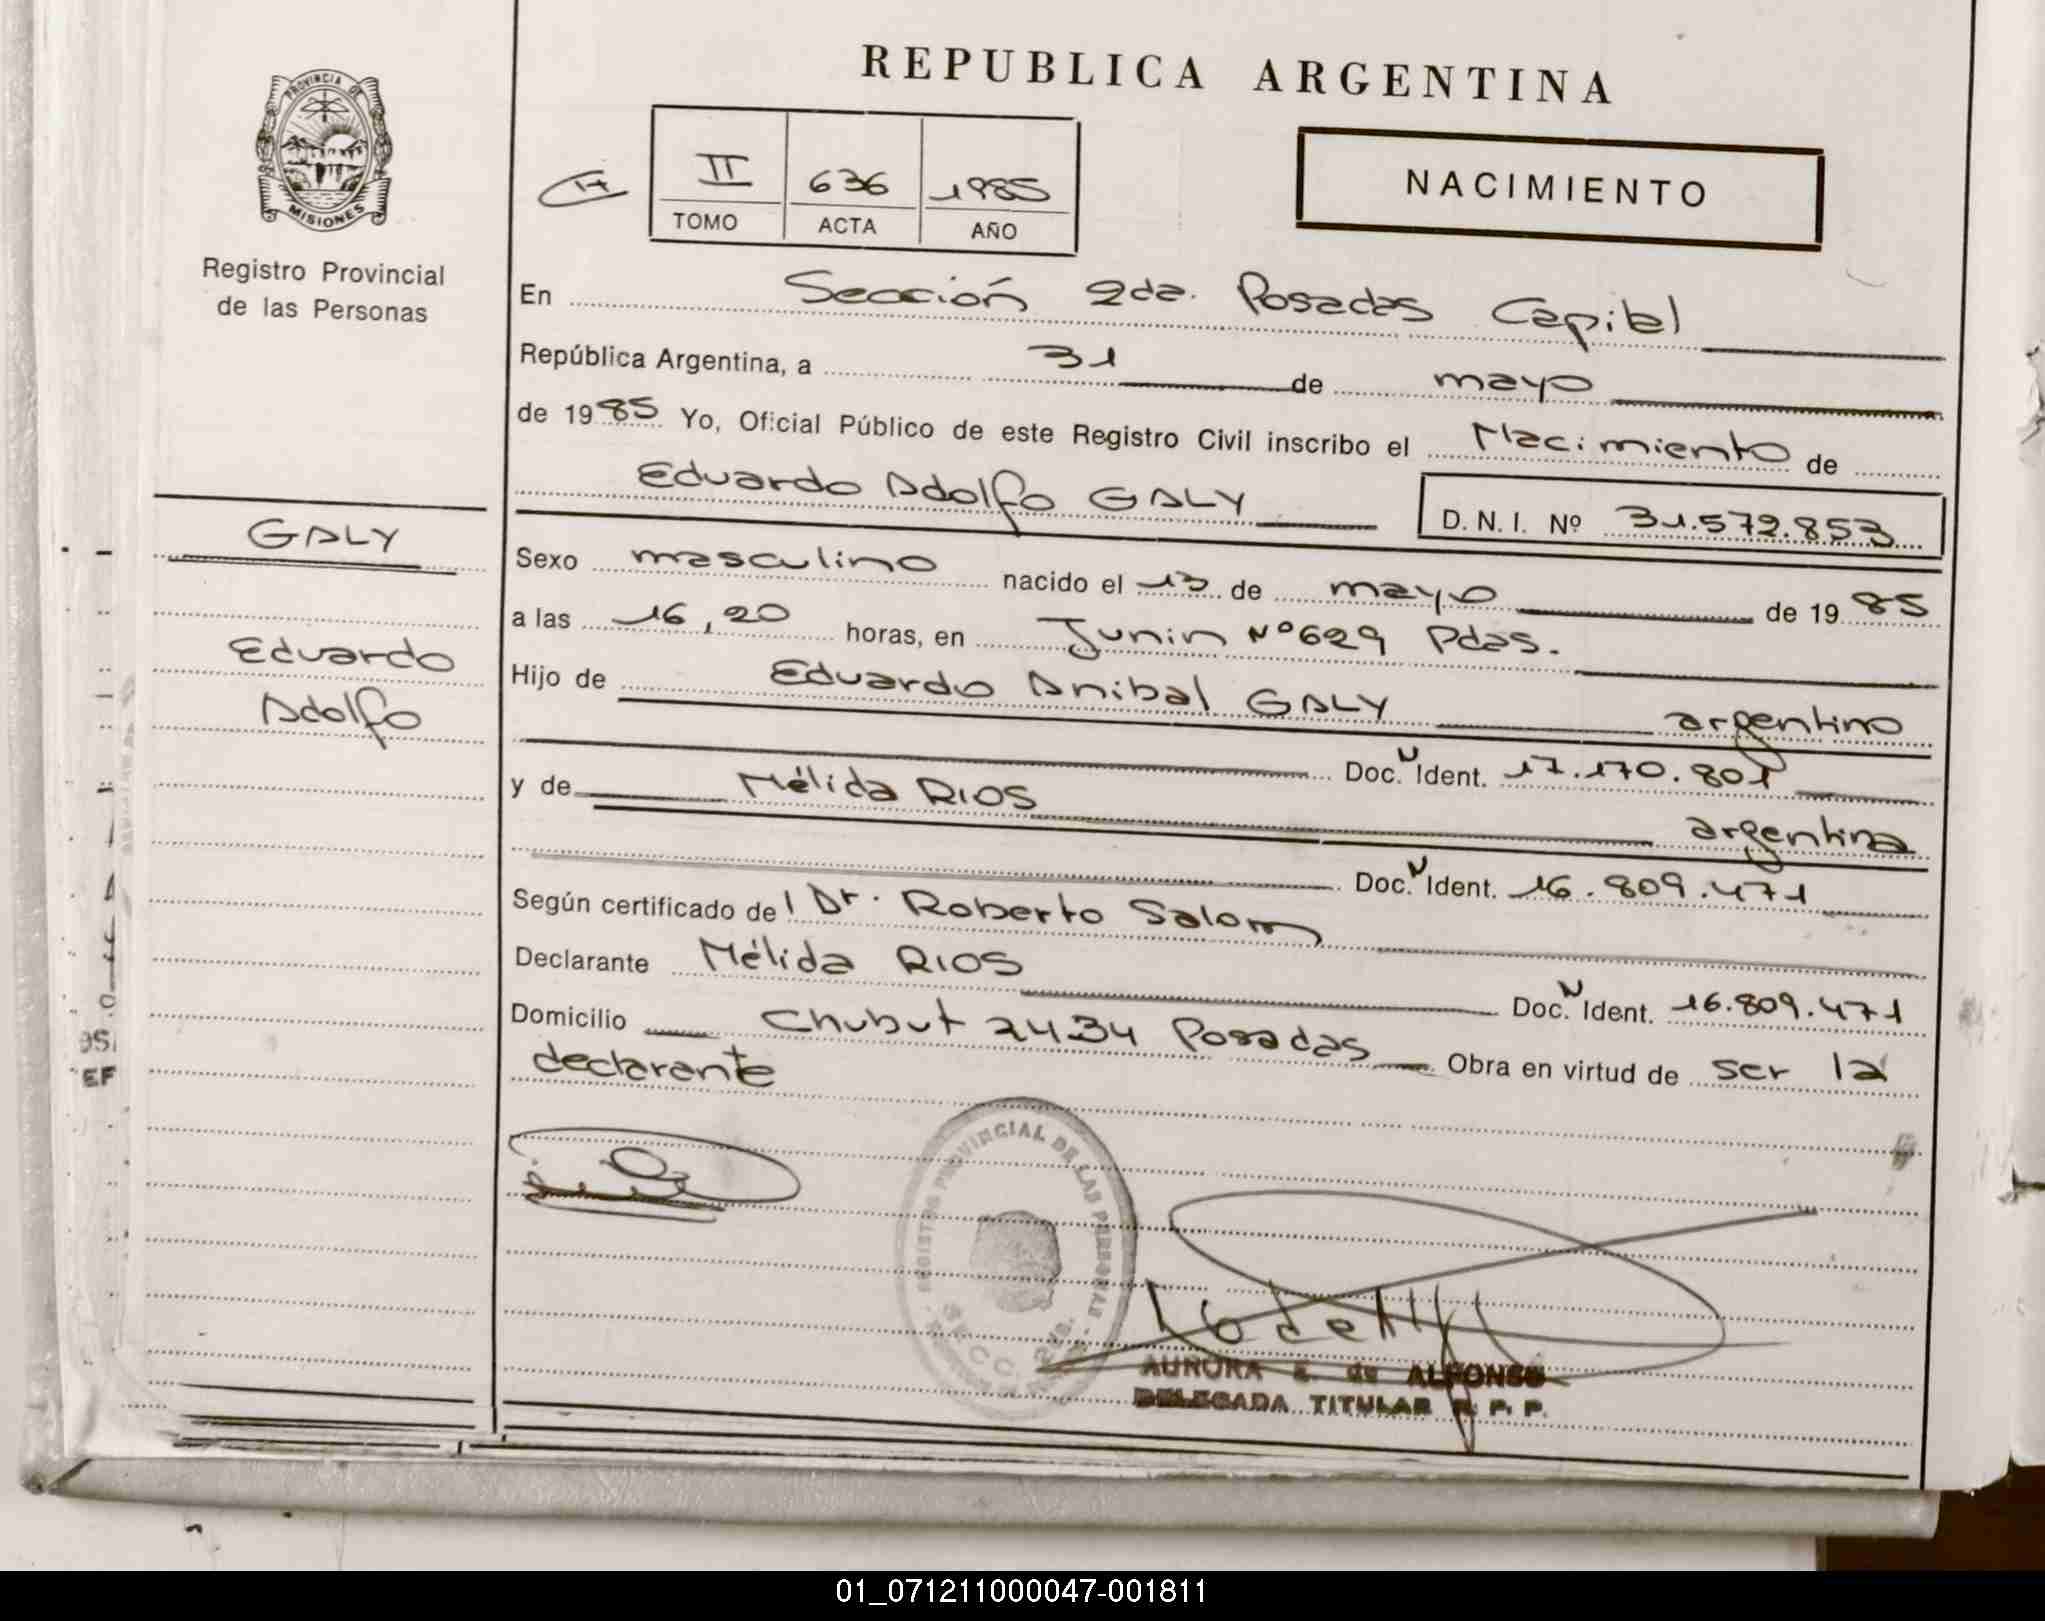 REPUBLICA ARGENTINA
PROVINCIA DE
MISIONES
Registro Provincial
de las Personas
II 636 1985
TOMO ACTA AÑO
NACIMIENTO
En Sección 2da. Posadas Capital
República Argentina, a 31 de mayo
de 1985 Yo, Oficial Público de este Registro Civil inscribo el Nacimiento de
Eduardo Adolfo GALY
D. N. I. Nº 31.572.853
GALY
Eduardo
Adolfo
Sexo masculino nacido el 13 de mayo de 1985
a las 16,20 horas, en Junin Nº 629 Pdas.
Hijo de Eduardo Anibal GALY argentino
Doc. N Ident. 17.170.801
y de Nélida RIOS
argentina
Doc. N Ident. 16.809.471
Según certificado del Dr. Roberto Salom
Declarante Nélida RIOS
Doc. N Ident. 16.809.471
Domicilio Chubut 2434 Posadas Obra en virtud de ser la
declarante
REGISTRO PROVINCIAL DE LAS PERSONAS
SECC.
AURORA E. de ALFONSO
DELEGADA TITULAR R. P. P.
01_071211000047-001811